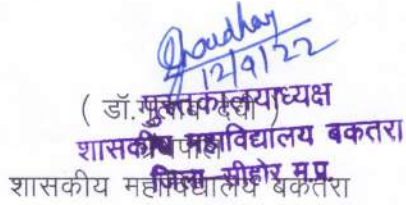 Choudhary
12/9/22
( डॉ. )
पुस्तकालयाध्यक्ष
शासकीय महाविद्यालय बकतरा
जिला सीहोर म.प्र.
शासकीय महाविद्यालय बकतरा